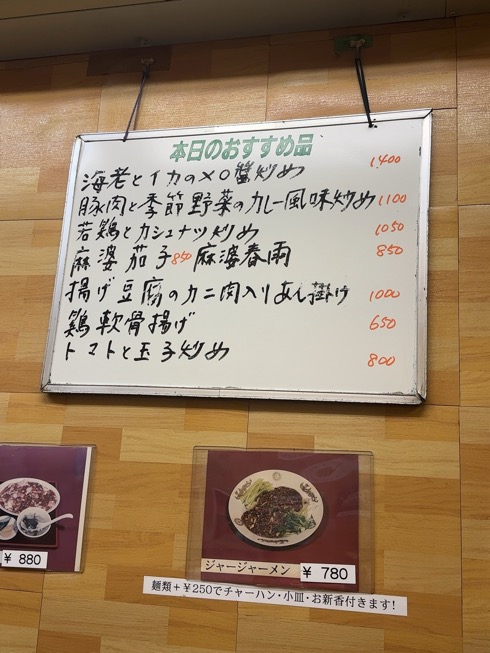 本日のおすすめ品
海老とイカのXO醤炒め 1400
豚肉と季節野菜のカレー風味炒め 1100
若鶏とカシュナッツ炒め 1050
麻婆茄子 850 麻婆春雨 850
揚げ豆腐のカニ肉入りあん掛け 1000
鶏軟骨揚げ 650
トマトと玉子炒め 800
¥ 880
ジャージャーメン ¥ 780
麺類+¥250でチャーハン・小皿・お新香付きます!